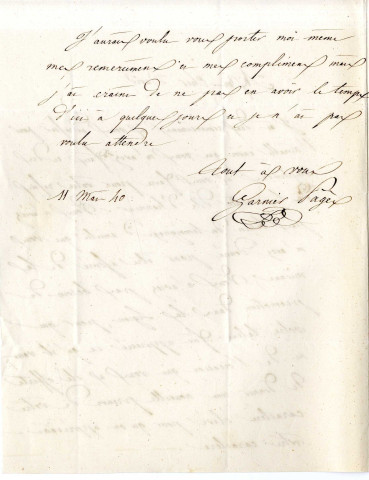 J'aurais voulu vous porter moi même
mes remerciments et mes compliments mais
j'ai craint de ne pas en avoir le temps
d'ici à quelques jours et je n'ai pas
voulu attendre
Tout à vous
11 Mars 40. Garnier Pagès